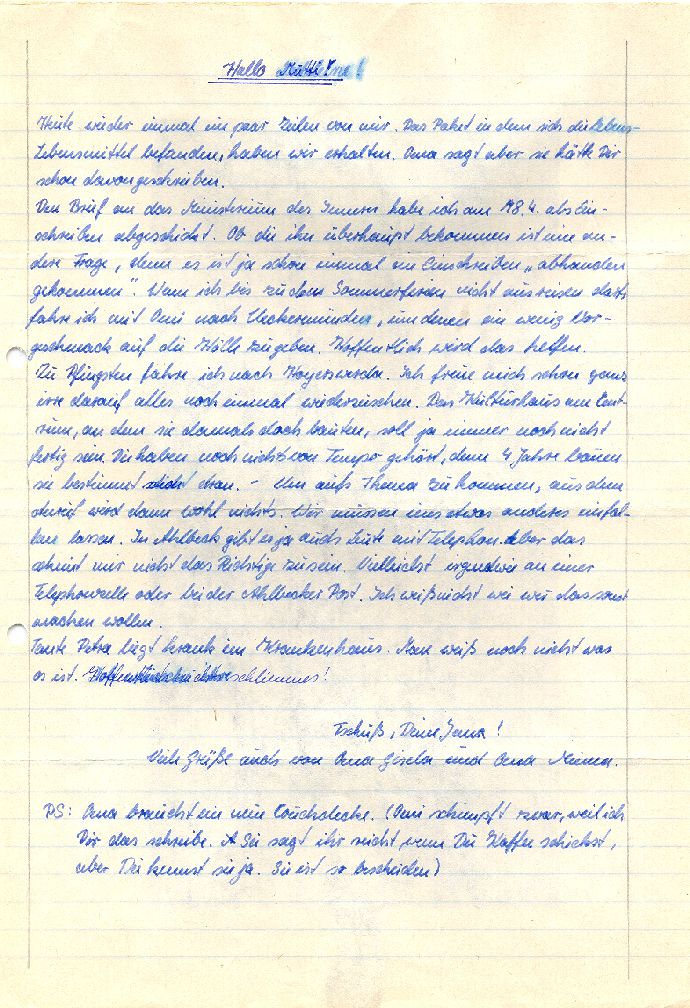 Hallo Mutti!
Heute wieder einmal ein paar Zeilen von mir. Das Paket in dem sich die Lebens-
Lebensmittel befanden, haben wir erhalten. Oma sagt aber sie hätte Dir
schon davon geschrieben.
Den Brief an das Ministerium des Inneren habe ich am 18.4. als Ein-
schreiben abgeschickt. Ob die ihn überhaupt bekommen ist eine an-
dere Frage, denn es ist ja schon einmal ein Einschreiben „abhanden
gekommen". Wenn ich bis zu den Sommerferien nicht ausreisen darf,
fahre ich mit Omi nach Ueckermünde, um denen ein wenig Vor-
geschmack auf die Hölle zu geben. Hoffentlich wird das helfen.
Zu Pfingsten fahre ich nach Hoyerswerda. Ich freue mich schon ganz
irre darauf alles noch einmal wiederzusehen. Das Kulturhaus am Zent-
rum, an dem sie damals doch bauten, soll ja immer noch nicht
fertig sein. Die haben noch nichts von Tempo gehört, denn 4 Jahre bauen
sie bestimmt dran. - Um aufs Thema zu kommen, aus dem
Anruf wird dann wohl nichts. Wir müssen uns etwas anderes einfal-
len lassen. In Ahlbeck gibt es ja auch Leute mit Telephon. Aber das
scheint mir nicht das Richtige zu sein. Vielleicht irgendwo an einer
Telephonzelle oder bei der Ahlbecker Post. Ich weiß nicht wie wir das sonst
machen wollen.
Tante Petra liegt krank im Krankenhaus. Man weiß noch nicht was
es ist. Hoffentlich nichts schlimmes!
Tschüß, Deine Jana!
Viele Grüße auch von Oma Gisela und Oma Minna.
PS: Oma braucht eine neue Couchdecke. (Omi schimpft zwar, weil ich
Dir das schreibe. Sie sagt ihr reicht wenn Du Kaffee schickst,
aber Du kennst sie ja. Sie ist so bescheiden)